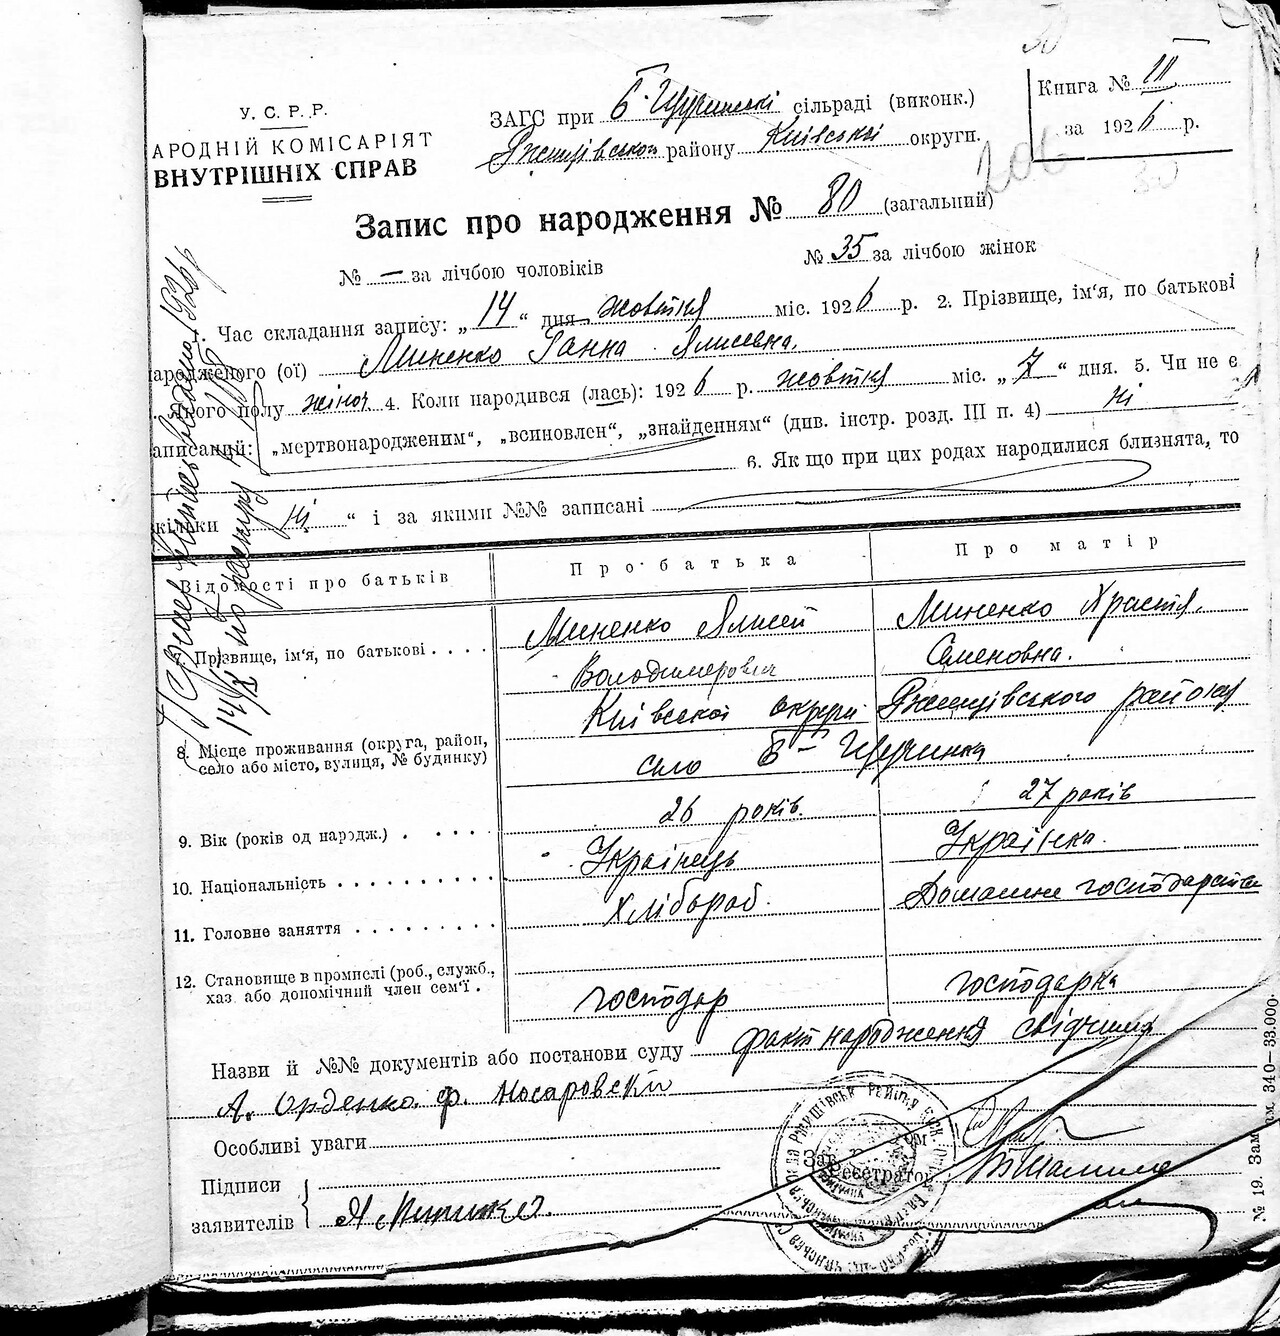 У. С. Р. Р.
АРОДНІЙ КОМІСАРІЯТ
ВНУТРІШНІХ СПРАВ
ЗАГС при Б-Щучинскі сільраді (виконк.)
Ржищівського району Київської округи.
Книга № III
за 1926 р.
Запис про народження № 80 (загальний)
№ — за лічбою чоловіків № 35 за лічбою жінок
Час складання запису: „14“ дня жовтня міс. 1926 р. 2. Прізвище, ім'я, по батькові
народженого (ої) Миненко Ганна Ялисевна.
якого полу жіноч 4. Коли народився (лась): 1926 р. жовтня міс. „7“ дня. 5. Чи не є
записаний: „мертвонародженим“, „всиновлен“, „знайденням“ (див. інстр. розд. III п. 4) ні
6. Як що при цих родах народилися близнята, то
скільки ні “ і за якими №№ записані
Відомості про батьків Про батька Про матір
7. Прізвище, ім'я, по батькові . . . . Миненко Ялисей Миненко Христя.
Володимерович Семеновна.
Київської округи Ржищівського району
8. Місце проживання (округа, район,
село або місто, вулиця, № будинку) село Б-Щучинка
9. Вік (років од народж.) . . . . . 26 років. 27 років
10. Національність . . . . . . . . . . Українець Українка.
11. Головне заняття . . . . . . . . . Хлібороб. Домашне господарство
12. Становище в промислі (роб., служб.,
хаз. або допомічний член сем'ї . господар господарка
Назви й №№ документів або постанови суду факт народження свідчили
А. Орденко. ф. Носаровский
Особливі уваги
Підписи
заявителів Я Миненко.
Реєстратор
№ 19. Зам. см. 340—33.000.